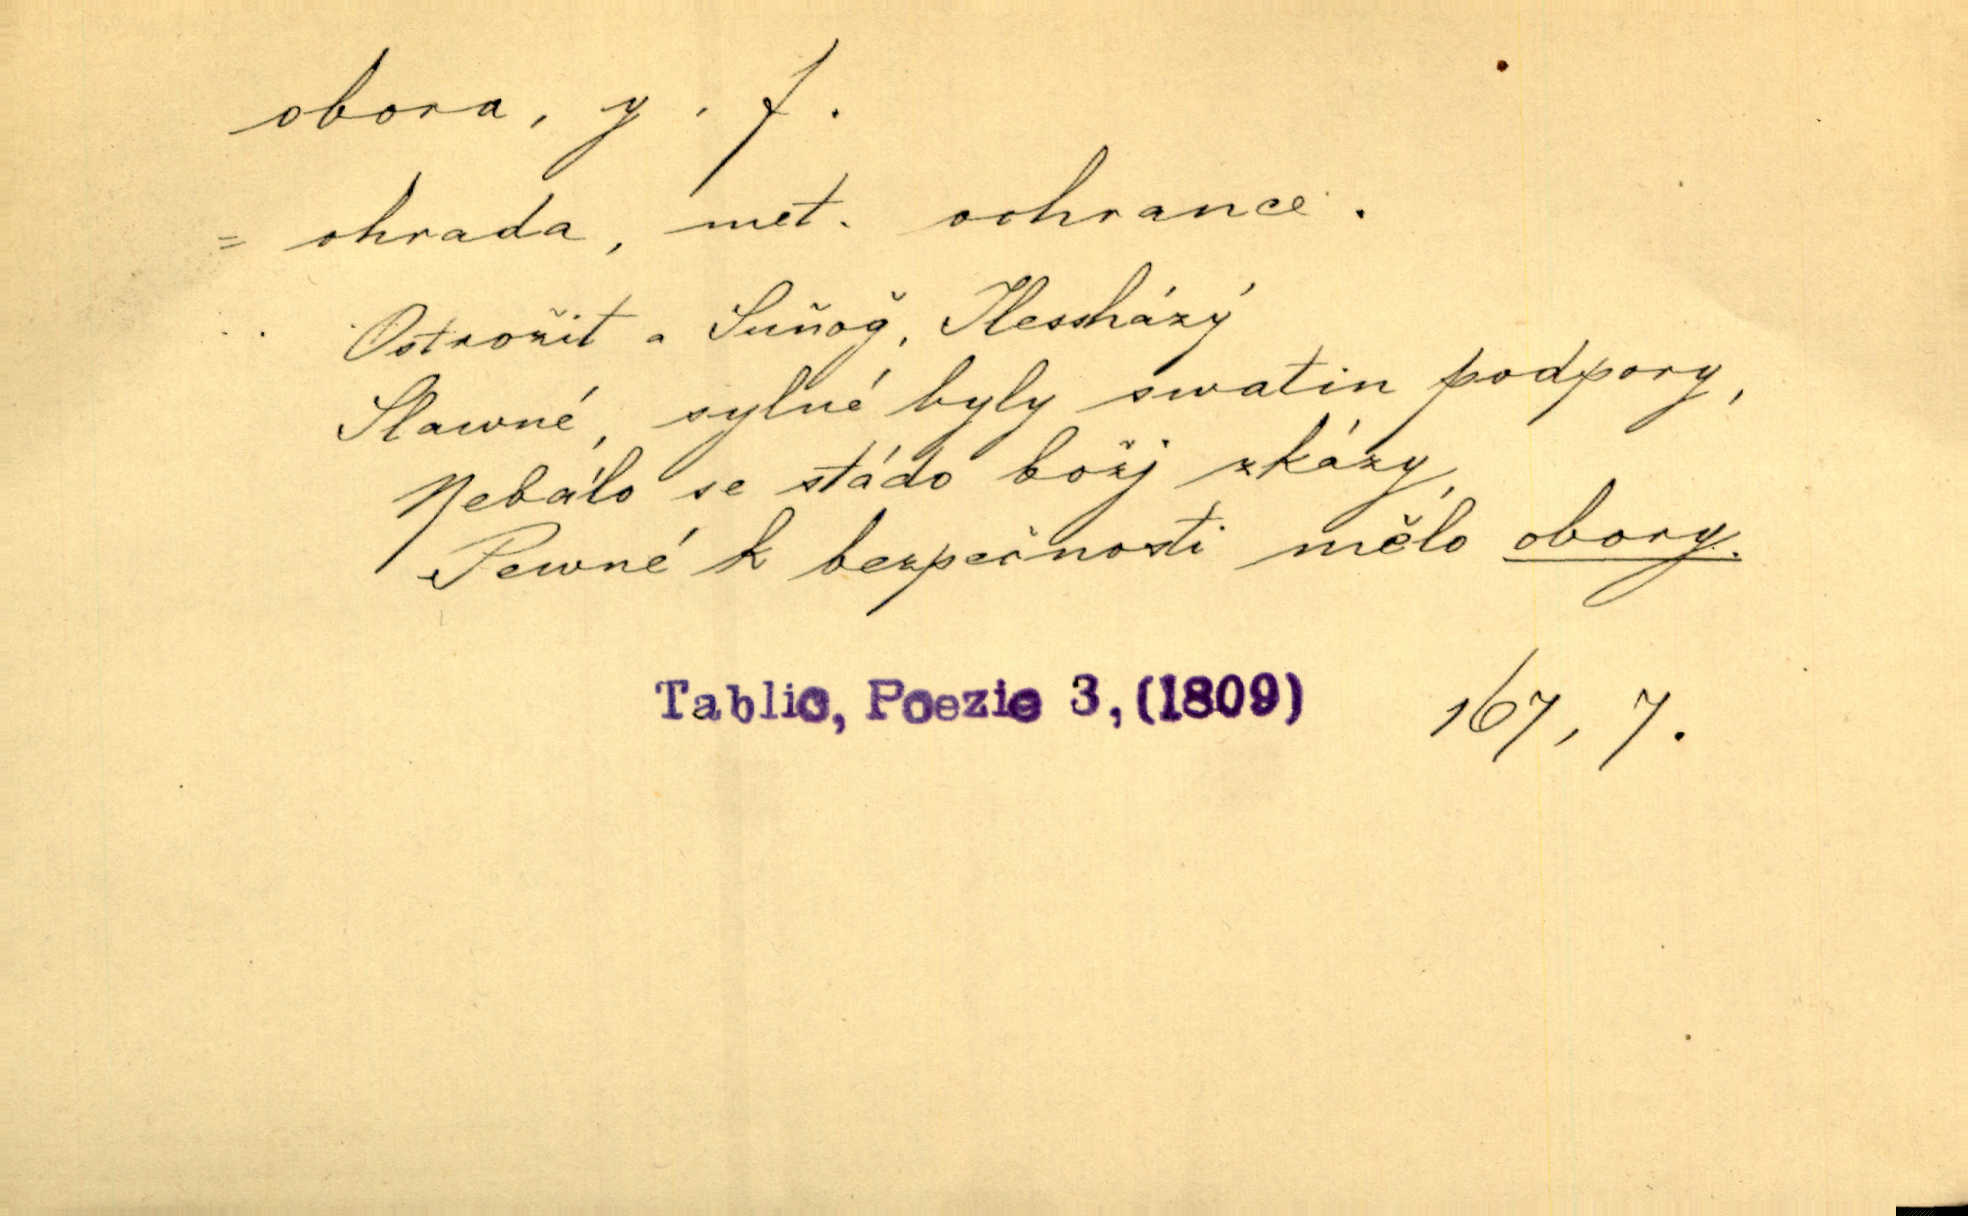 obora, y. f.
= ohrada, met. ochrance.
Ostrožit a Suňoğ, Illessházý
Slawné, sylné byly swatin podpory,
Nebálo se stádo božj zkázy,
Pewné k bezpečnosti mělo obory.
Tablic, Poezie 3, (1809) 167, 7.